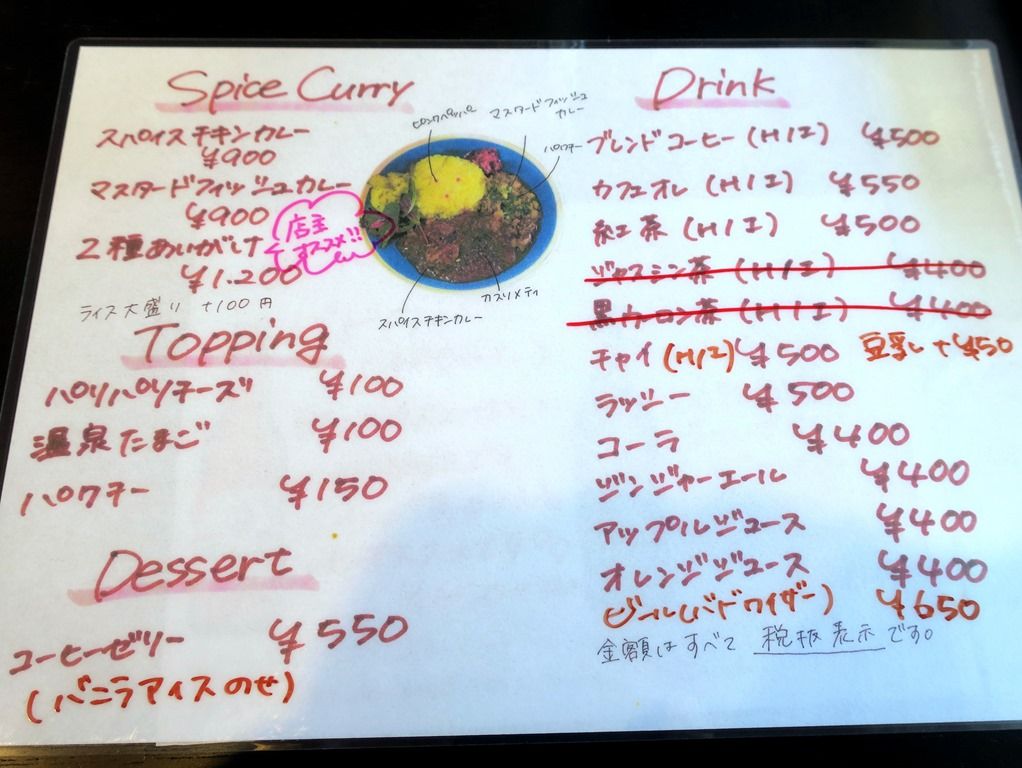 Spice Curry
スパイスチキンカレー
¥900
マスタードフィッシュカレー
¥900
2種あいがけ
¥1.200
店主
オススメ!!
ライス大盛り +100円
ピンクペッパー
マスタードフィッシュ
カレー
パクチー
カスリメティ
スパイスチキンカレー
Topping
パリパリチーズ ¥100
温泉たまご ¥100
パクチー ¥150
Dessert
コーヒーゼリー ¥550
(バニラアイスのせ)
Drink
ブレンドコーヒー (H/I) ¥500
カフェオレ (H/I) ¥550
紅茶 (H/I) ¥500
ジャスミン茶 (H/I) ¥400
黒ウーロン茶 (H/I) ¥400
チャイ (H/I) ¥500 豆乳 +¥50
ラッシー ¥500
コーラ ¥400
ジンジャーエール ¥400
アップルジュース ¥400
オレンジジュース ¥400
ビール(バドワイザー) ¥650
金額はすべて 税抜表示です。